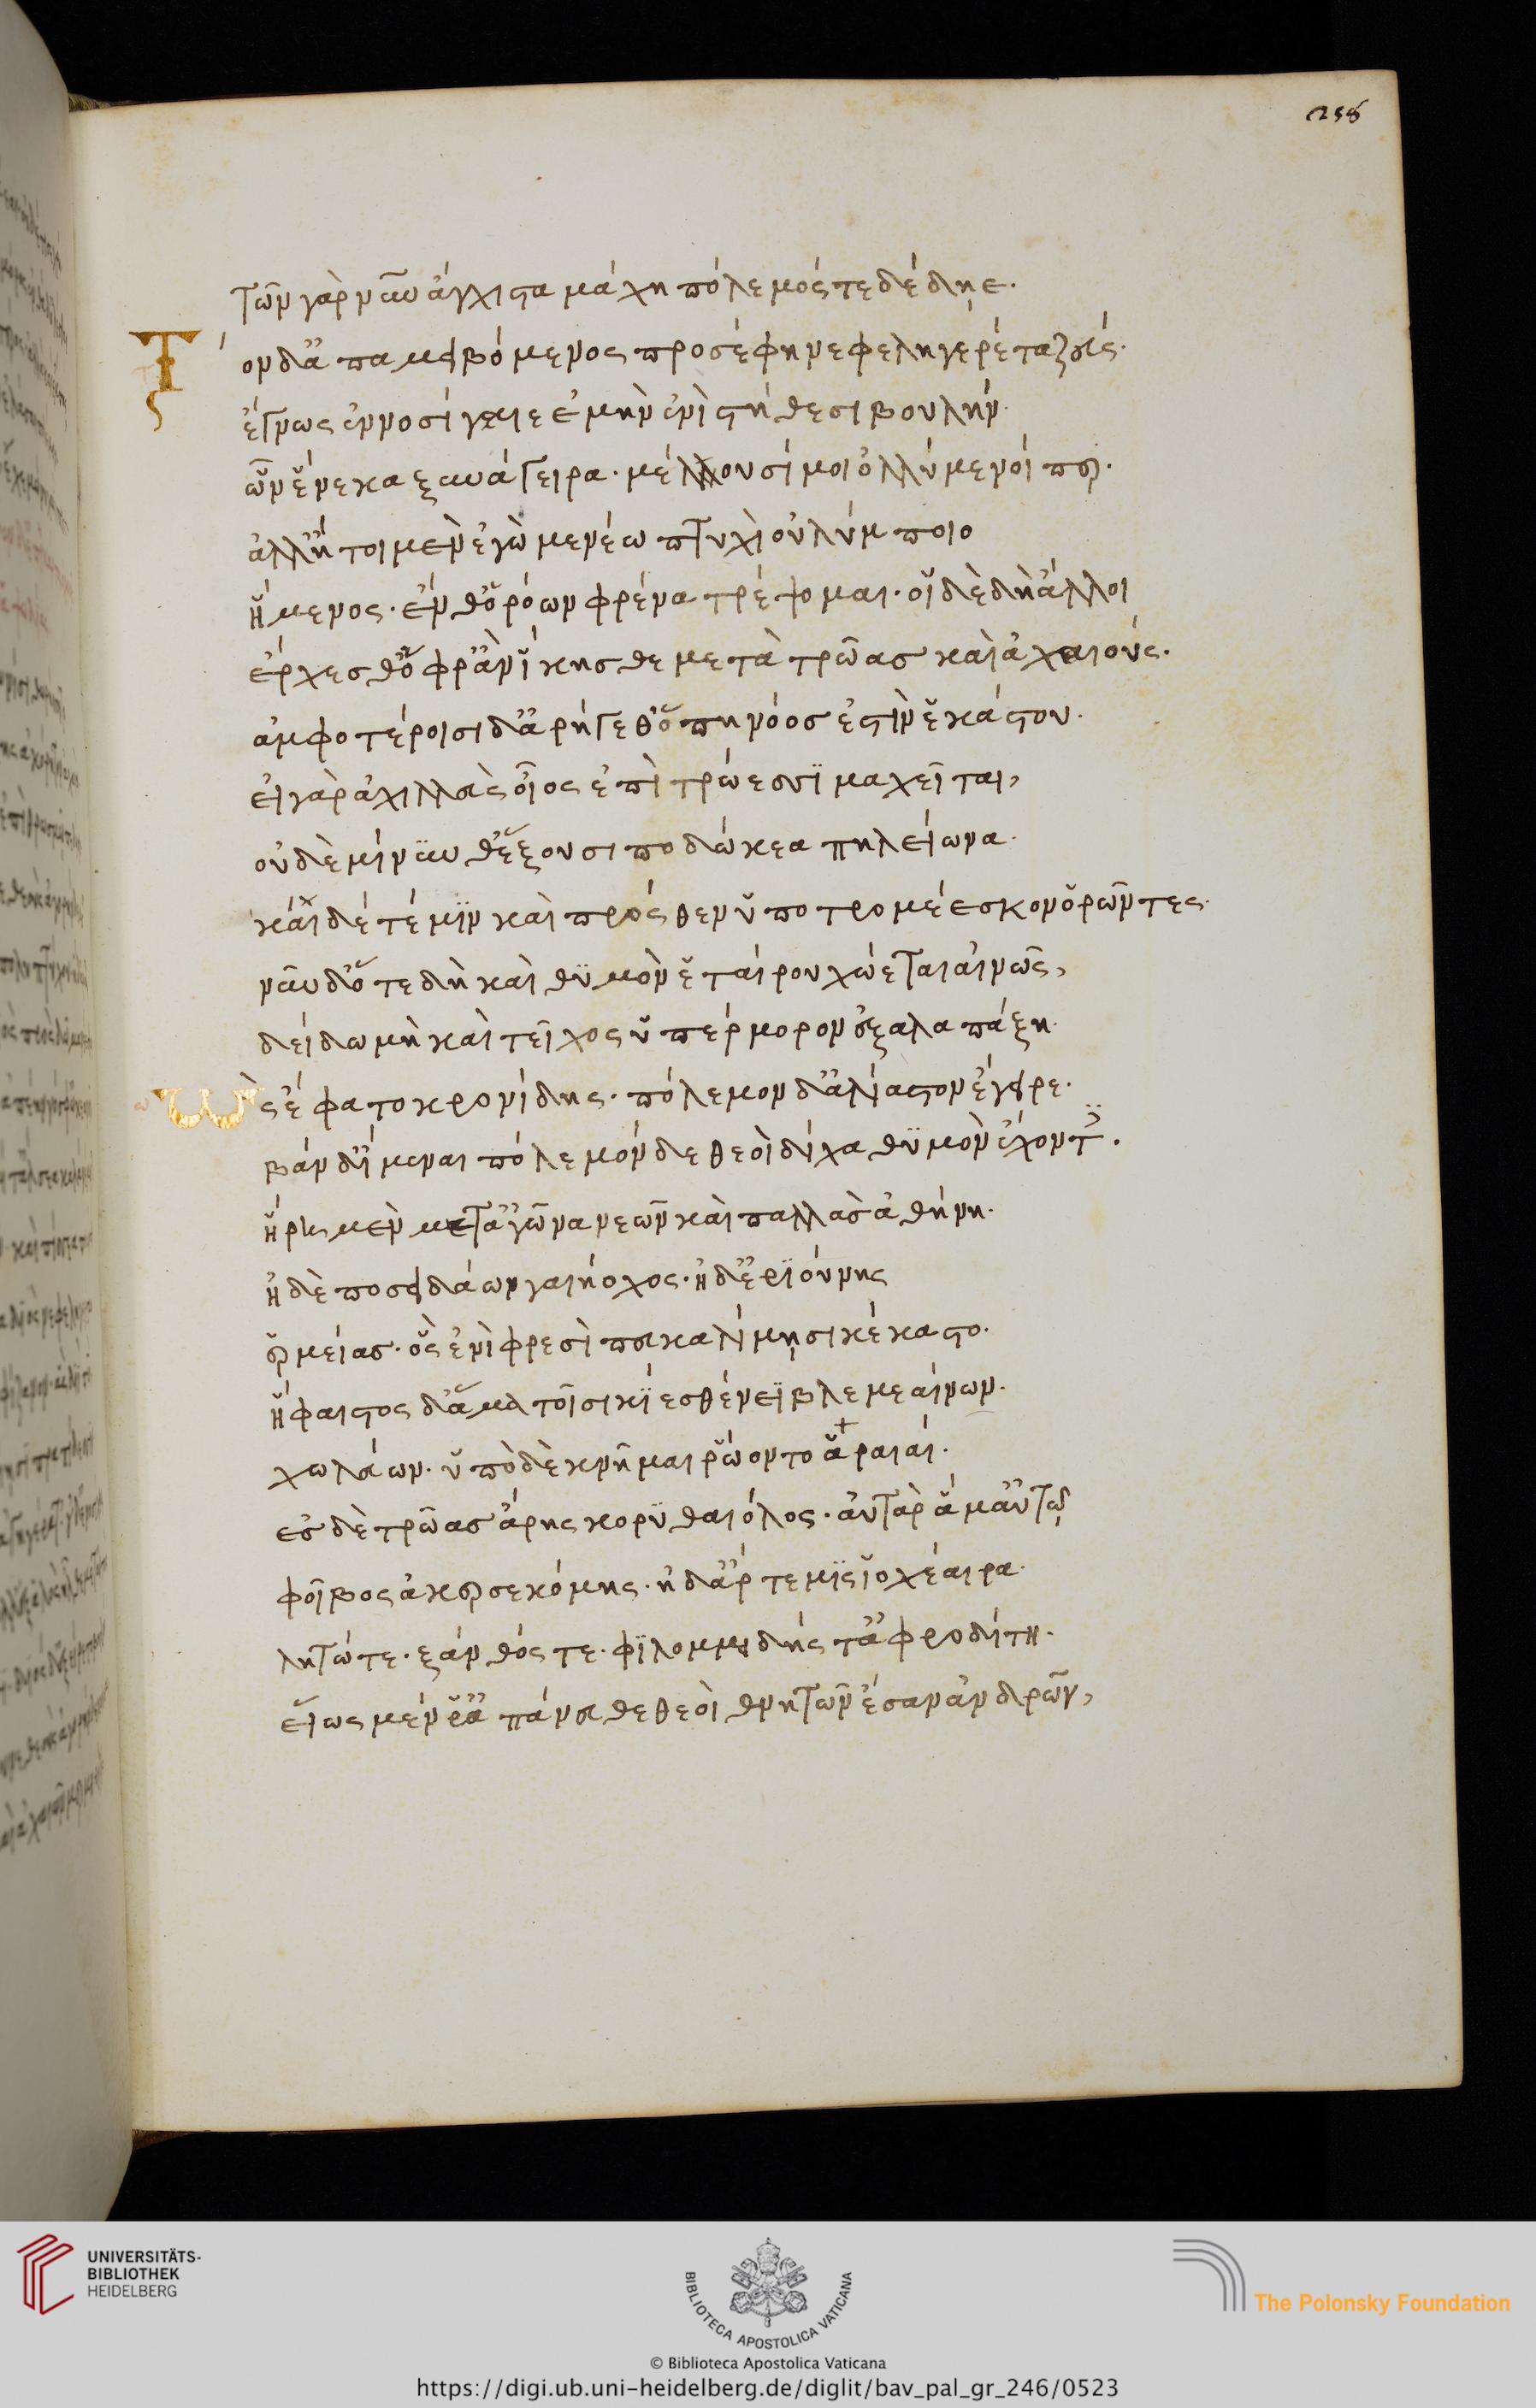 258
τῶν γὰρ νῦν ἄγχιστα μάχη πόλεμός τε δέδηε.
Τὸν δ' ἀπαμειβόμενος προσέφη νεφεληγερέτα ζεύς.
ἔγνως ἐννοσίγαιε ἐμὴν ἐνὶ στήθεσι βουλήν.
ὧν ἕνεκα ξυνάγειρα. μέλλουσί μοι ὀλλύμενοί περ.
ἀλλ' ἤτοι μὲν ἐγὼ μενέω πτυχὶ οὐλύμποιο
ἥμενος. ἔνθ' ὁρόων φρένα τρέψομαι. οἱ δὲ δὴ ἄλλοι
ἔρχεσθ' ὄφρ' ἂν ἵκησθε μετὰ τρῶας καὶ ἀχαιούς.
ἀμφοτέροισι δ' ἀρήγεθ' ὅπη νόος ἐστὶν ἑκάστου.
εἰ γὰρ ἀχιλλεὺς οἶος ἐπὶ τρώεσσι μαχεῖται,
οὐδὲ μίνυνθ' ἕξουσι ποδώκεα πηλείωνα.
καὶ δέ τέ μϊν καὶ πρόσθεν ὑποτρομέεσκον ὁρῶντες.
νῦν δ' ὅτε δὴ καὶ θϋμὸν ἑταίρου χώεται αἰνῶς,
δείδω μὴ καὶ τεῖχος ὑπέρμορον ἐξαλαπάξη.
Ὣς ἔφατο κρονίδης. πόλεμον δ' ἀλίαστον ἔγειρε.
βὰν δ' ἴμεναι πόλεμόνδε θεοὶ δίχα θϋμὸν ἔχοντες.
ἥρη μὲν μετ' ἀγῶνα νεῶν καὶ παλλὰς ἀθήνη.
ἠδὲ ποσειδάων γαιήοχος. ἠδ' ἐρϊούνης
ἑρμείας. ὃς ἐνὶ φρεσὶ πευκαλίμῃσι κέκαστο.
ἥφαιστος δ' ἅμα τοῖσι κίε σθένεϊ βλεμεαίνων.
χωλεύων. ὑπὸ δὲ κνῆμαι ῥώοντο ἁραιαί.
ἐς δὲ τρῶας ἄρης κορϋθαιόλος. αὐτὰρ ἅμ' αὐτῷ
φοῖβος ἀκερσεκόμης. ἠδ' ἄρτεμϊς ἰοχέαιρα.
λητώ τε. ξάνθός τε. φϊλομμειδής τ' ἀφροδίτη.
εἵως μέν ῥ' ἀπάνευθε θεοὶ θνητῶν ἔσαν ἀνδρῶν,
UNIVERSITÄTS-
BIBLIOTHEK
HEIDELBERG
BIBLIOTECA APOSTOLICA VATICANA
© Biblioteca Apostolica Vaticana
The Polonsky Foundation
https://digi.ub.uni-heidelberg.de/diglit/bav_pal_gr_246/0523